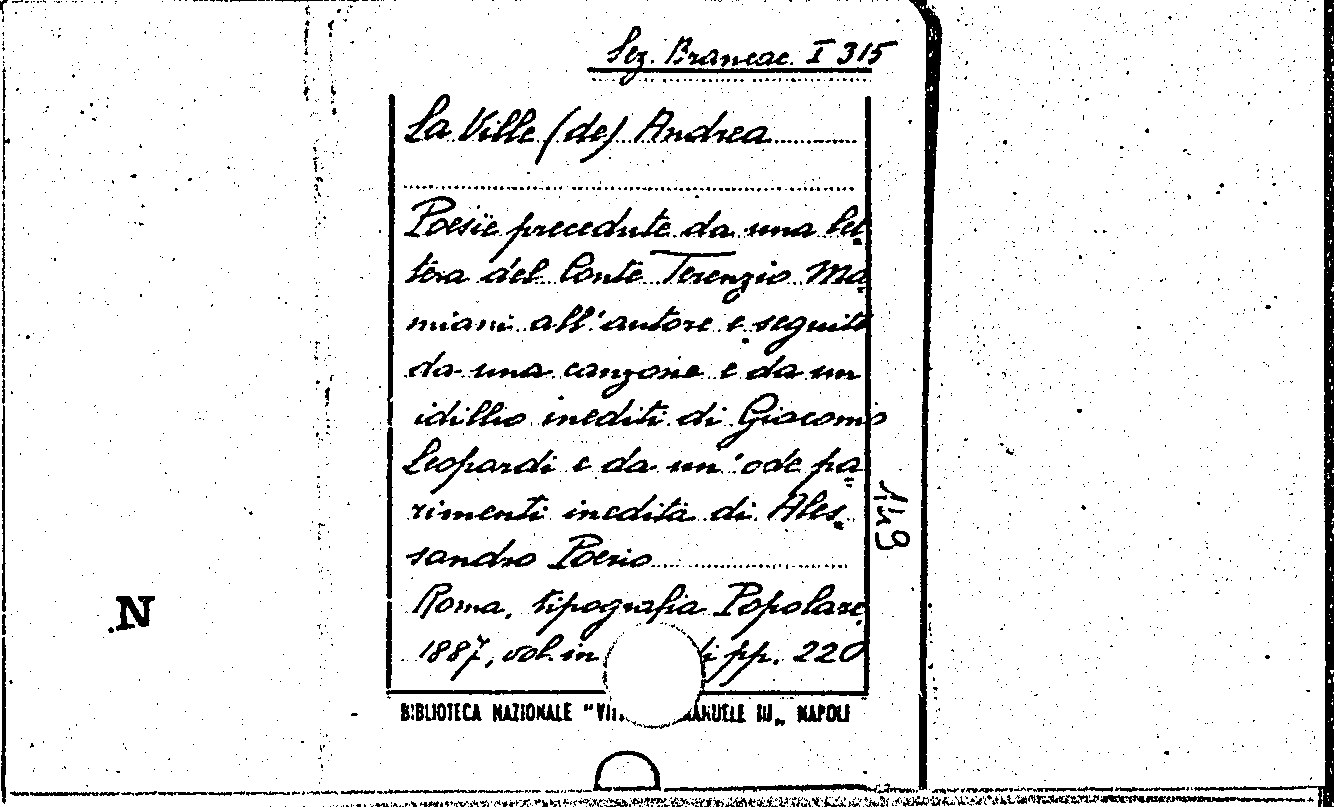 Sez. Brancac. I 315
La Ville (de) Andrea
Poesie precedute da una let-
tera del Conte Terenzio Ma-
miani all'autore e seguite
da una canzone e da un
idillio inediti di Giacomo
Leopardi e da un'ode pa-
rimenti inedita di Ales-
sandro Poerio
Roma, tipografia Popolare,
1887, vol. in pp. 220
BIBLIOTECA NAZIONALE "VITT MANUELE III„ NAPOLI
N